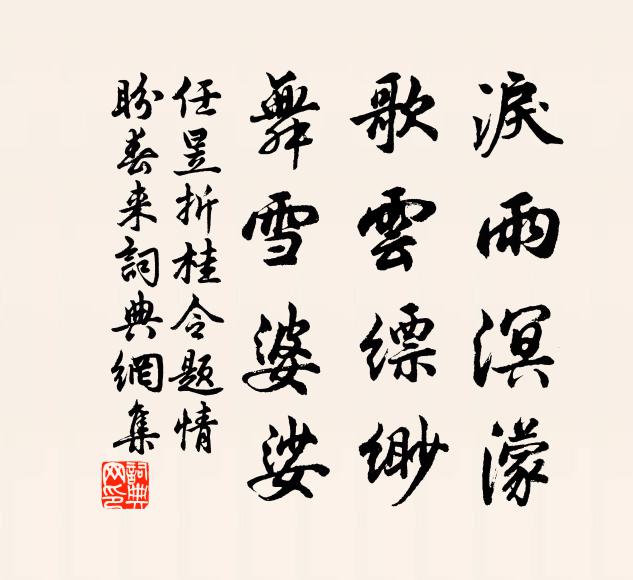 淚雨溟濛
歌雲縹緲
舞雪婆娑
任昱折桂令題情
盼春来詞典網集
詞典网印